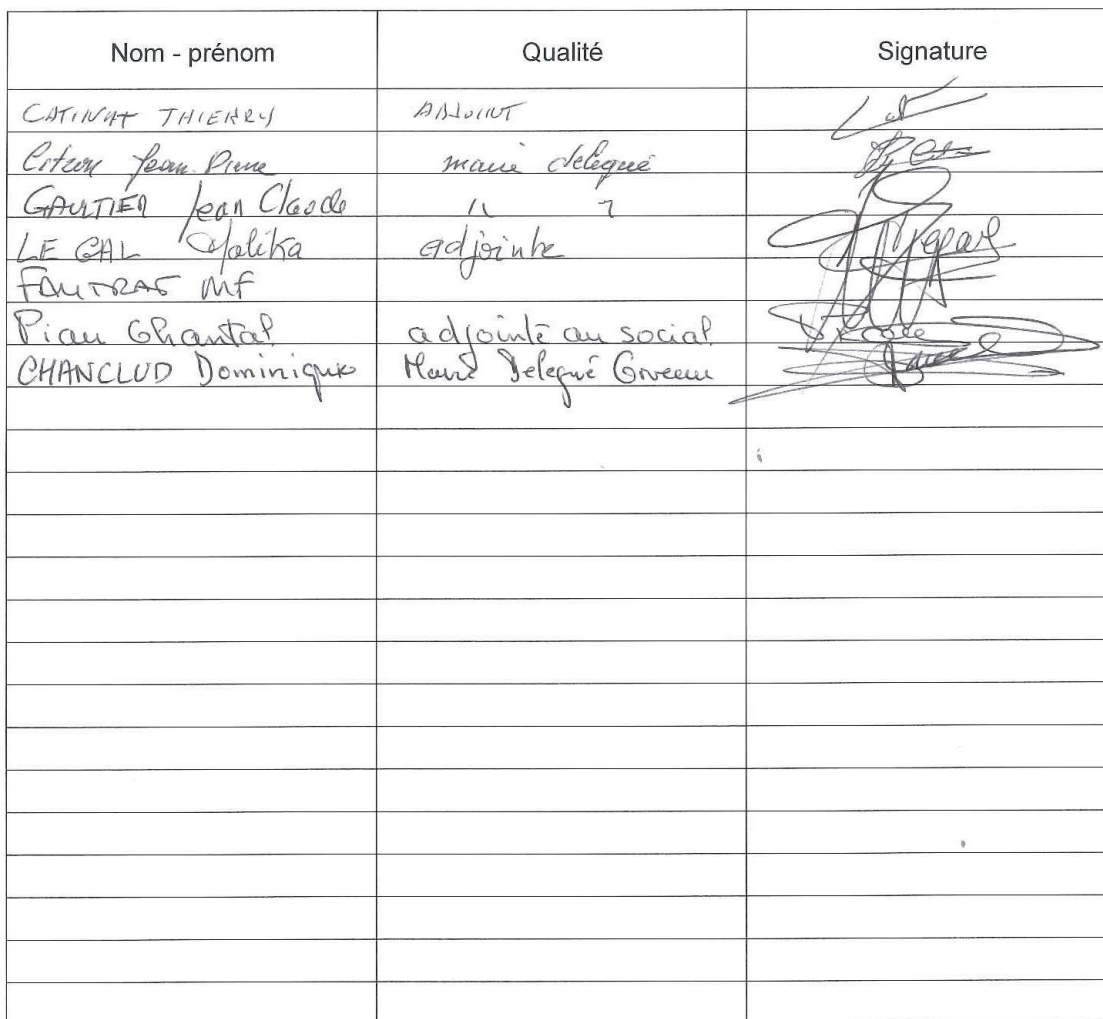 Nom - prénom Qualité Signature
CATINAT THIERRY ADJOINT
Citron Jean Pierre maire délégué
GAULTIER Jean Claude " "
LE GAL Malika adjointe
FAUTRAS MF
Piau Chantal adjointe au social
CHANCLUD Dominique Maire Delegué